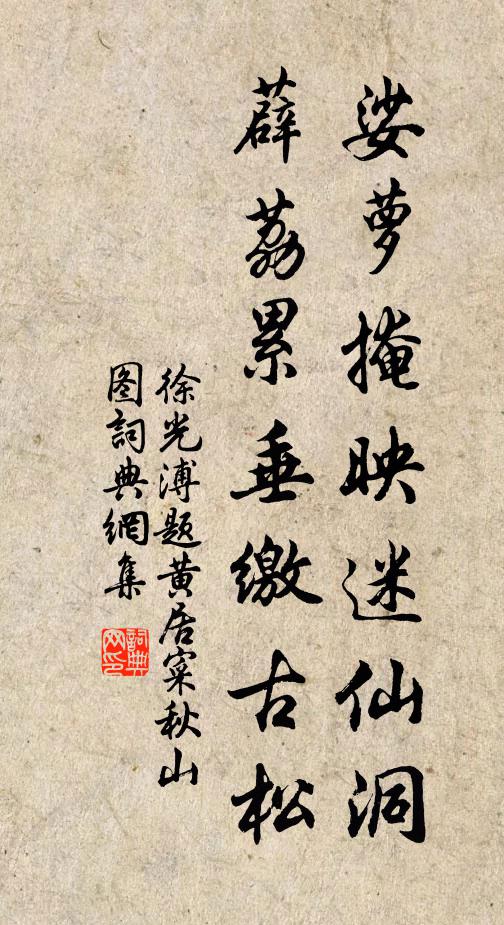 娑萝掩映迷仙洞
薜荔累垂繳古松
徐光溥题黄居寀秋山
图詞典網集
詞典
网印